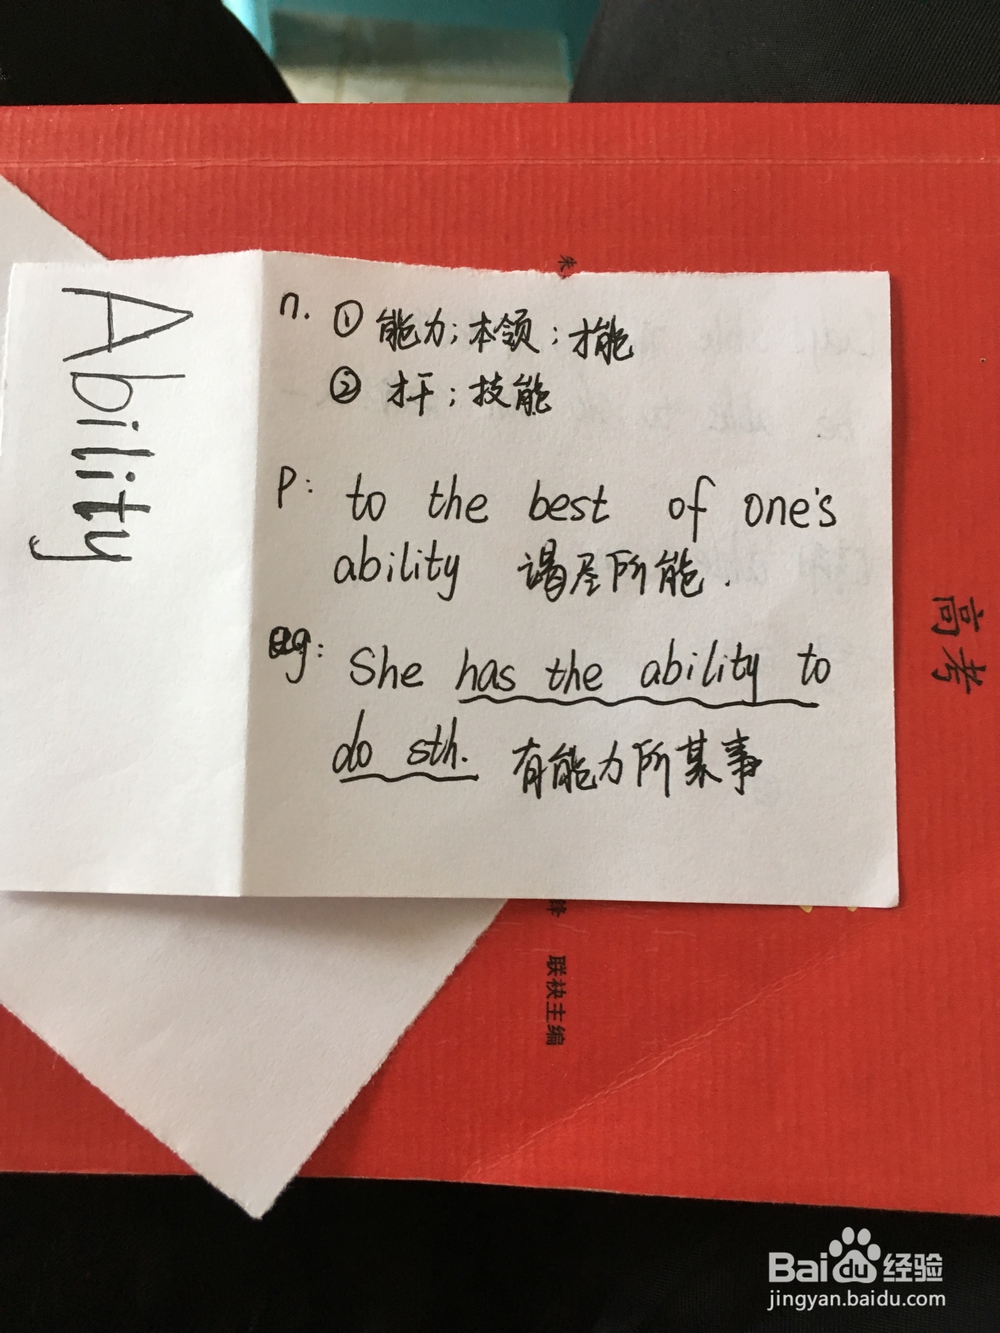 Ability
n. ① 能力；本领；才能
② 才干；技能
P: to the best of one's
ability 谒尽所能.
eg: She has the ability to
do sth. 有能力所某事
朱
高考
联袂主编
Baidu经验
jingyan.baidu.com